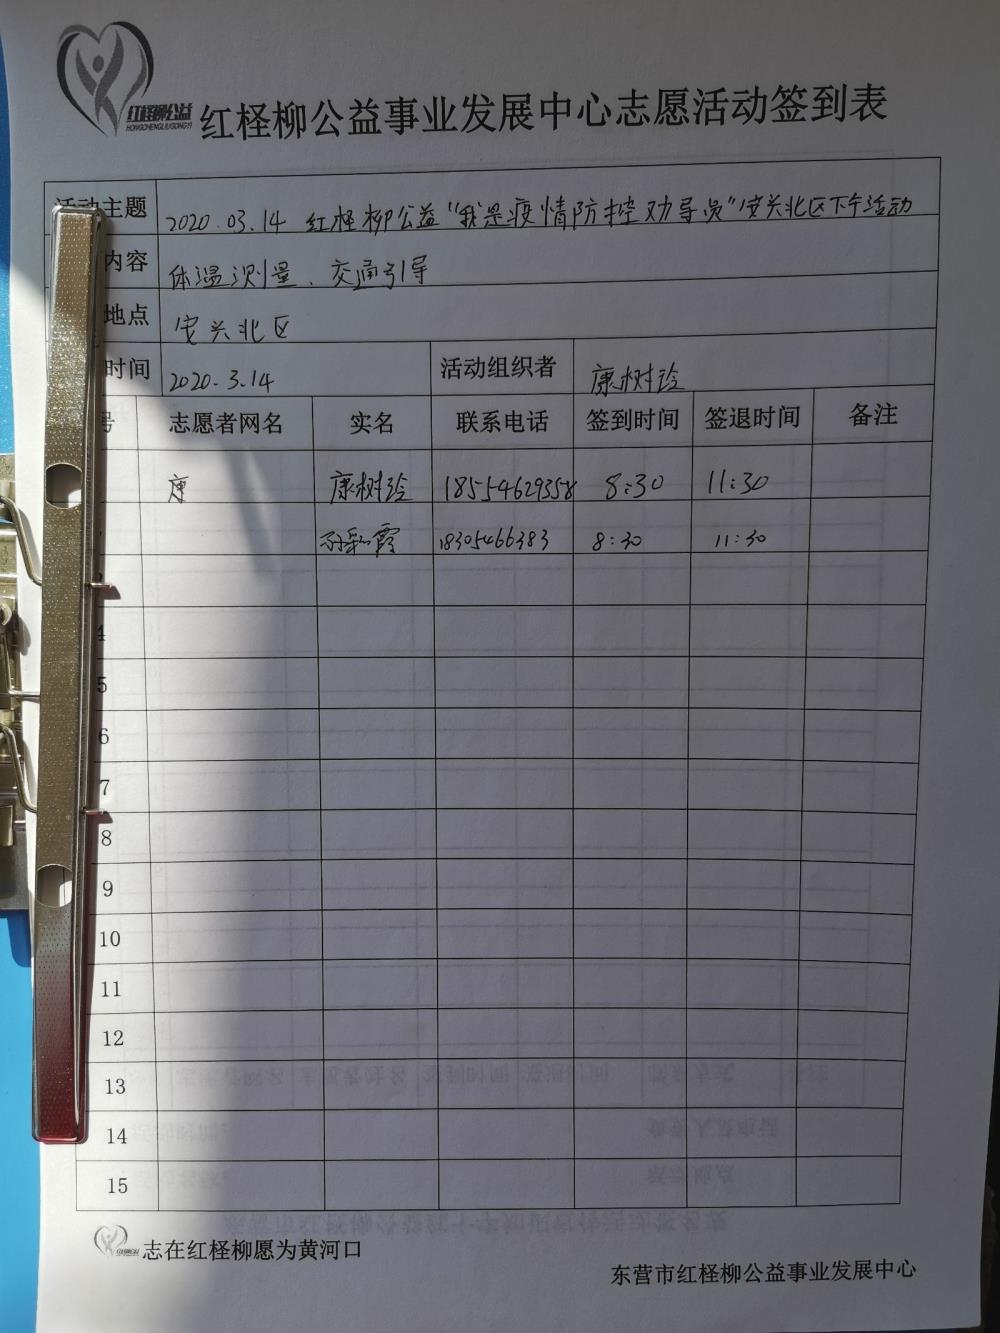 红柽柳公益
HONGCHENGLIUGONGYI
红柽柳公益事业发展中心志愿活动签到表
活动主题 2020.03.14 红柽柳公益“我是疫情防控劝导员”安兴北区下午活动
内容 体温测量、交通引导
地点 安兴北区
时间 2020.3.14 活动组织者 康树玲
号 志愿者网名 实名 联系电话 签到时间 签退时间 备注
康 康树玲 18554629358 8:30 11:30
18305466383 8:30 11:30
4
5
6
7
8
9
10
11
12
13
14
15
志在红柽柳愿为黄河口
东营市红柽柳公益事业发展中心